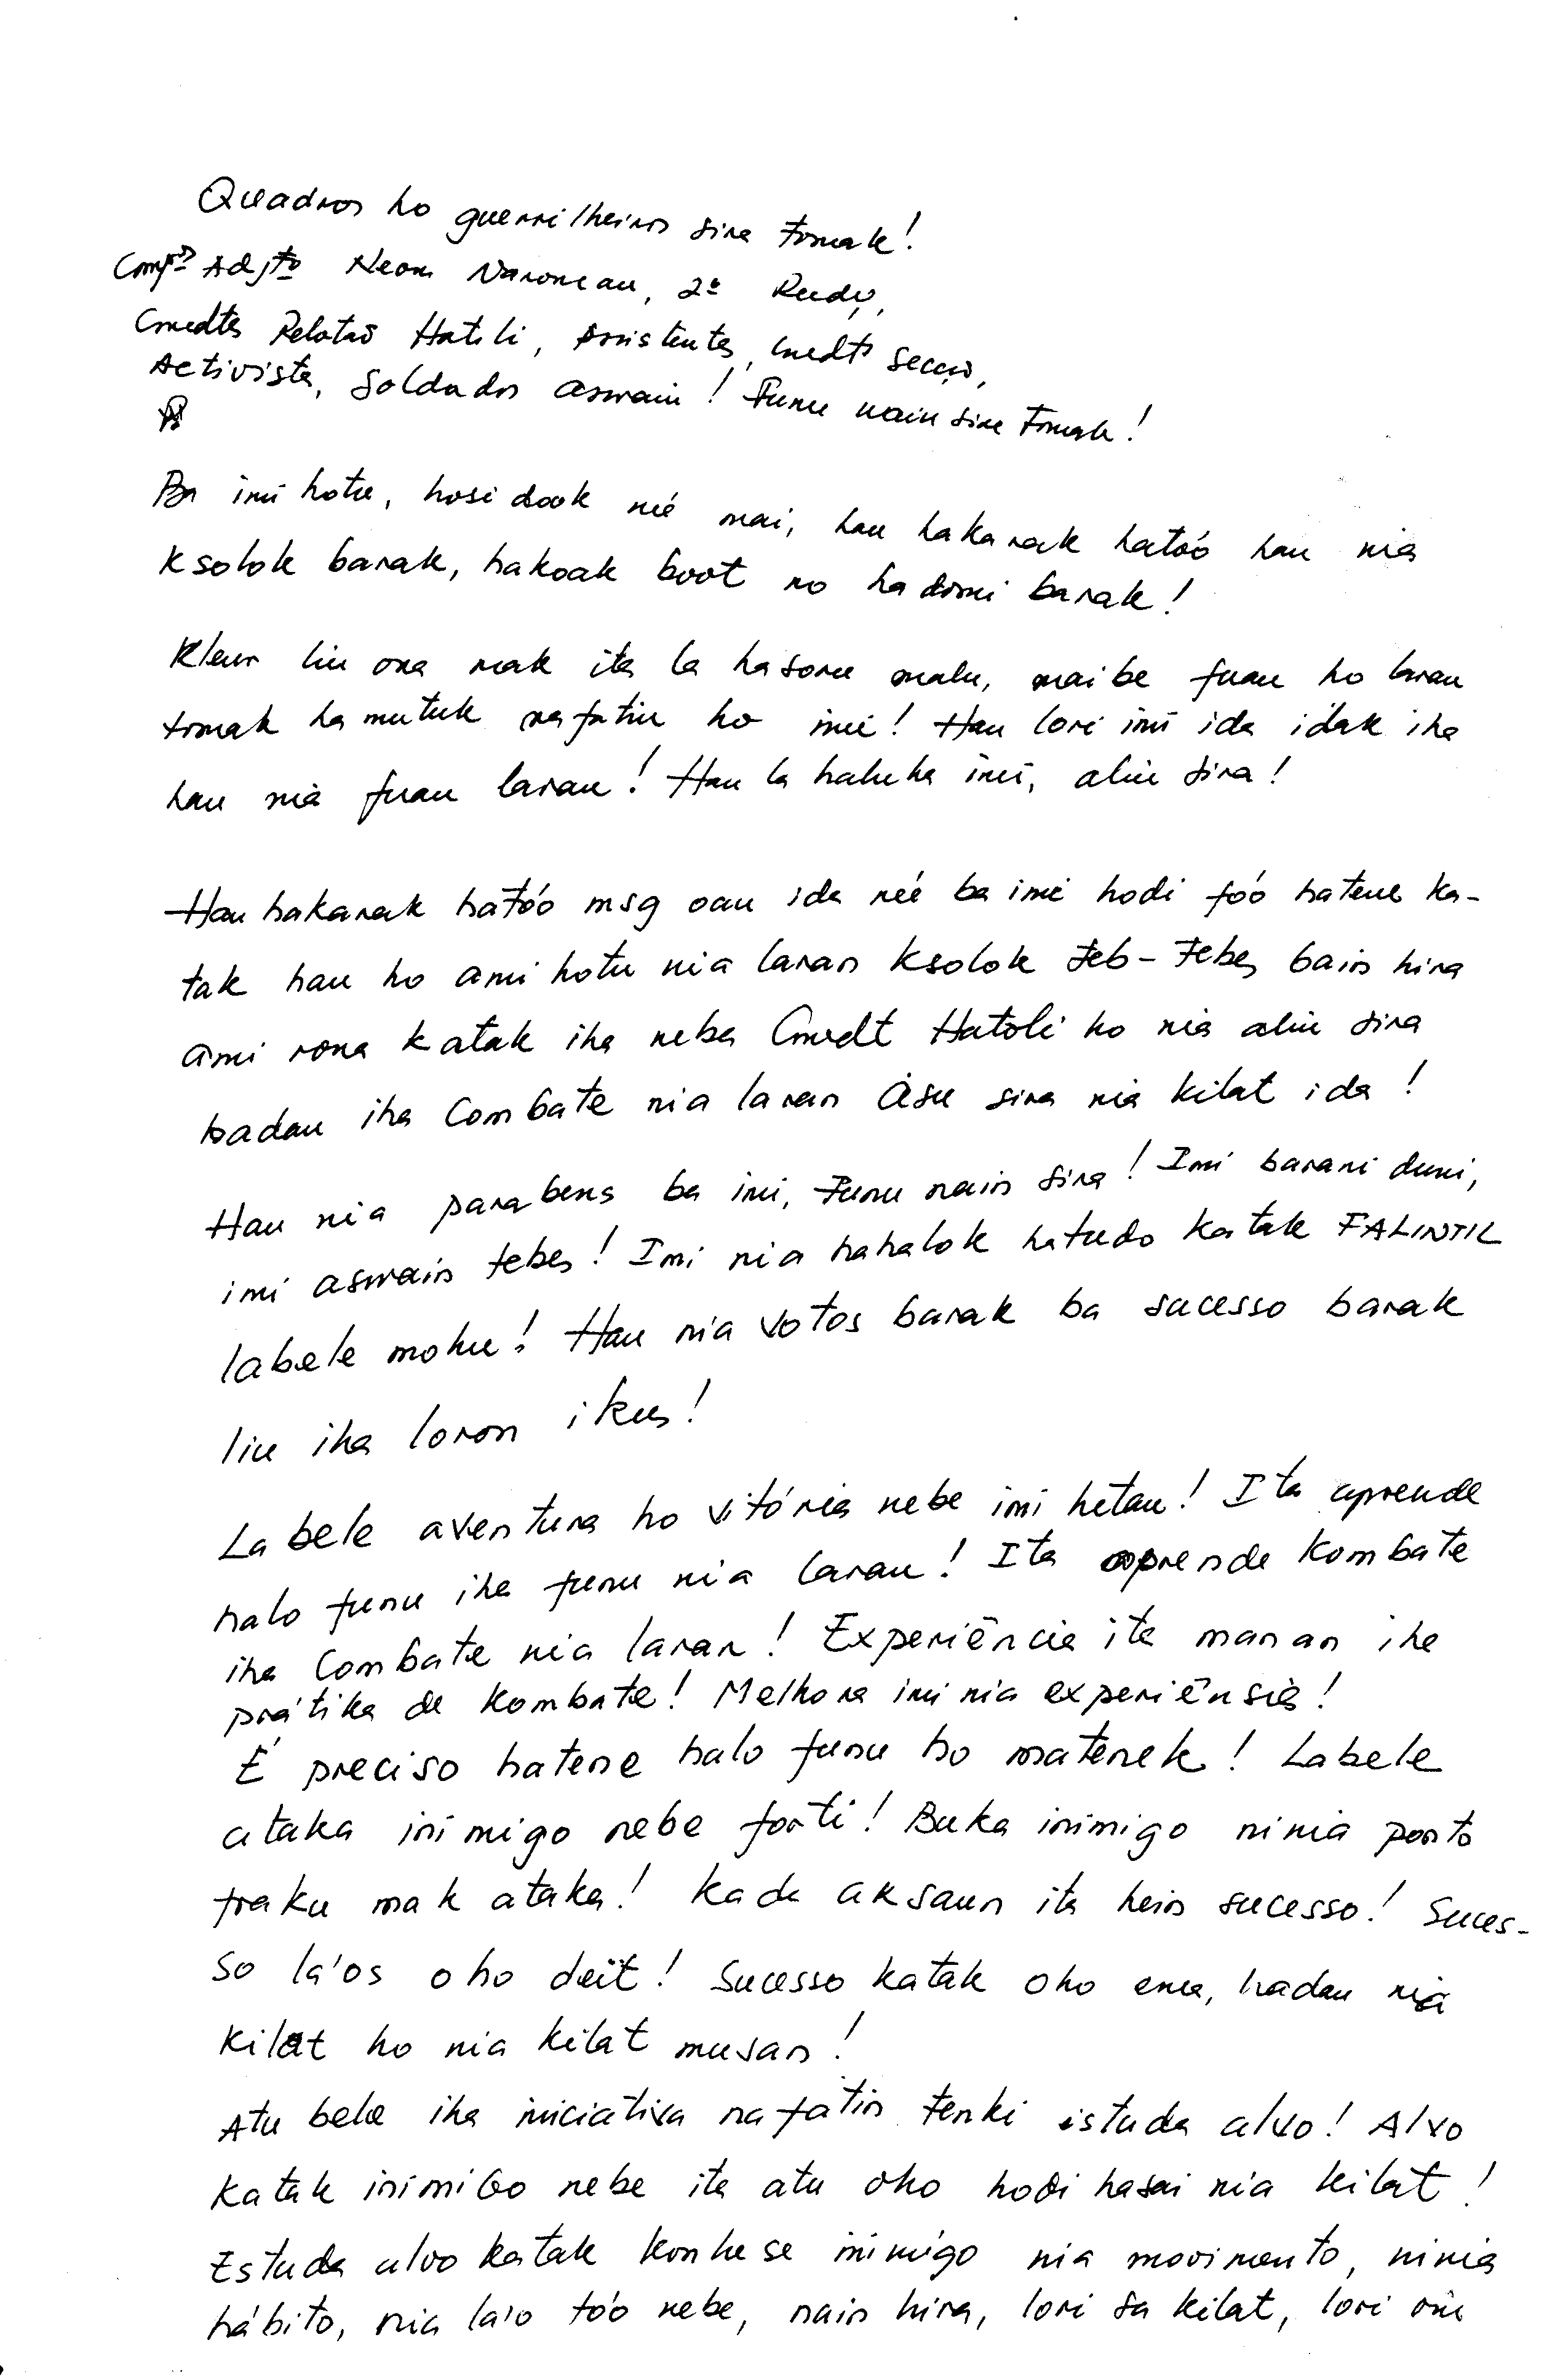 Quadros ho guerrilheiros sira tomak!
Adjto Neon Naroman, 2º Rudy,
Cmdtes Pelotaõ Hatoli, Assistentes, Cmdts secção,
Activista, soldados aswain! Funu nain sira tomak!
Ba imi hotu, hosi dook né mai, hau hakarak hatóo hau nia
ksolok barak, hakoak boot no hadomi barak!
Kleur liu ona mak ita la hasoru malu, maibe fuan ho laran
tomak hamutuk nafatin ho imi! Hau lori imi ida idak iha
hau nia fuan laran! Hau la haluha imi, alin sira!
Hau hakarak hatóo msg oan ida néé ba imi hodi fóo hatene ka-
tak hau ho ami hotu nia laran ksolok teb-tebes bain hira
ami rona katak iha neba Cmdt Hatoli ho nia alin sira
hadau iha combate nia laran asu sira nia kilat ida!
Hau nia parabens ba imi, funu nain sira! Imi barani duni,
imi aswain tebes! Imi nia hahalok hatudo katak FALINTIL
labele mohu! Hau nia votos barak ba sucesso barak
liu iha loron ikus!
Labele aventura ho vitória nebe imi hetan! Ita aprende
halo funu iha funu nia laran! Ita aprende kombate
iha combate nia laran! Experiência ita manan iha
prátika de kombate! Melhora imi nia experiênsia!
É preciso hatene halo funu ho matenek! Labele
ataka inimigo nebe forti! Buka inimigo ninia ponto
fraku mak ataka! Kada aksaun ita hein sucesso! Suces-
so la'os oho deit! Sucesso katak oho ema, hadau nia
kilat ho nia kilat musan!
Atu bele iha iniciativa nafatin tenki istuda alvo! Alvo
katak inimigo nebe ita atu oho hodi hasai nia kilat!
Estuda alvo katak konhese inimigo nia movimento, ninia
hábito, nia la'o tóo nebe, nain hira, lori sa kilat, lori